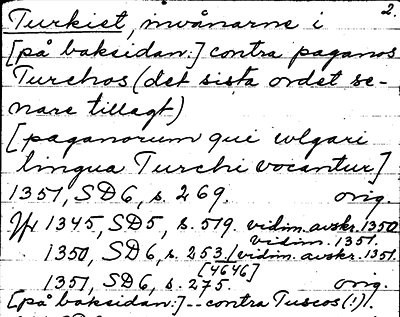 2.
Turkiet, invånarne i
[på baksidan:] contra paganos
Turchos (det sista ordet se-
nare tillagt)
[paganorum qui vulgari
lingua Turchi vocantur]
1351, SD6, s. 269. orig.
Jfr 1345, SD5, s. 519. vidim. avskr. 1350
vidim. 1351.
1350, SD6, s. 253./vidim. avskr. 1351.
[4646]
1351, SD6, s. 275. orig.
[på baksidan:]--contra Tuscos(!)/.